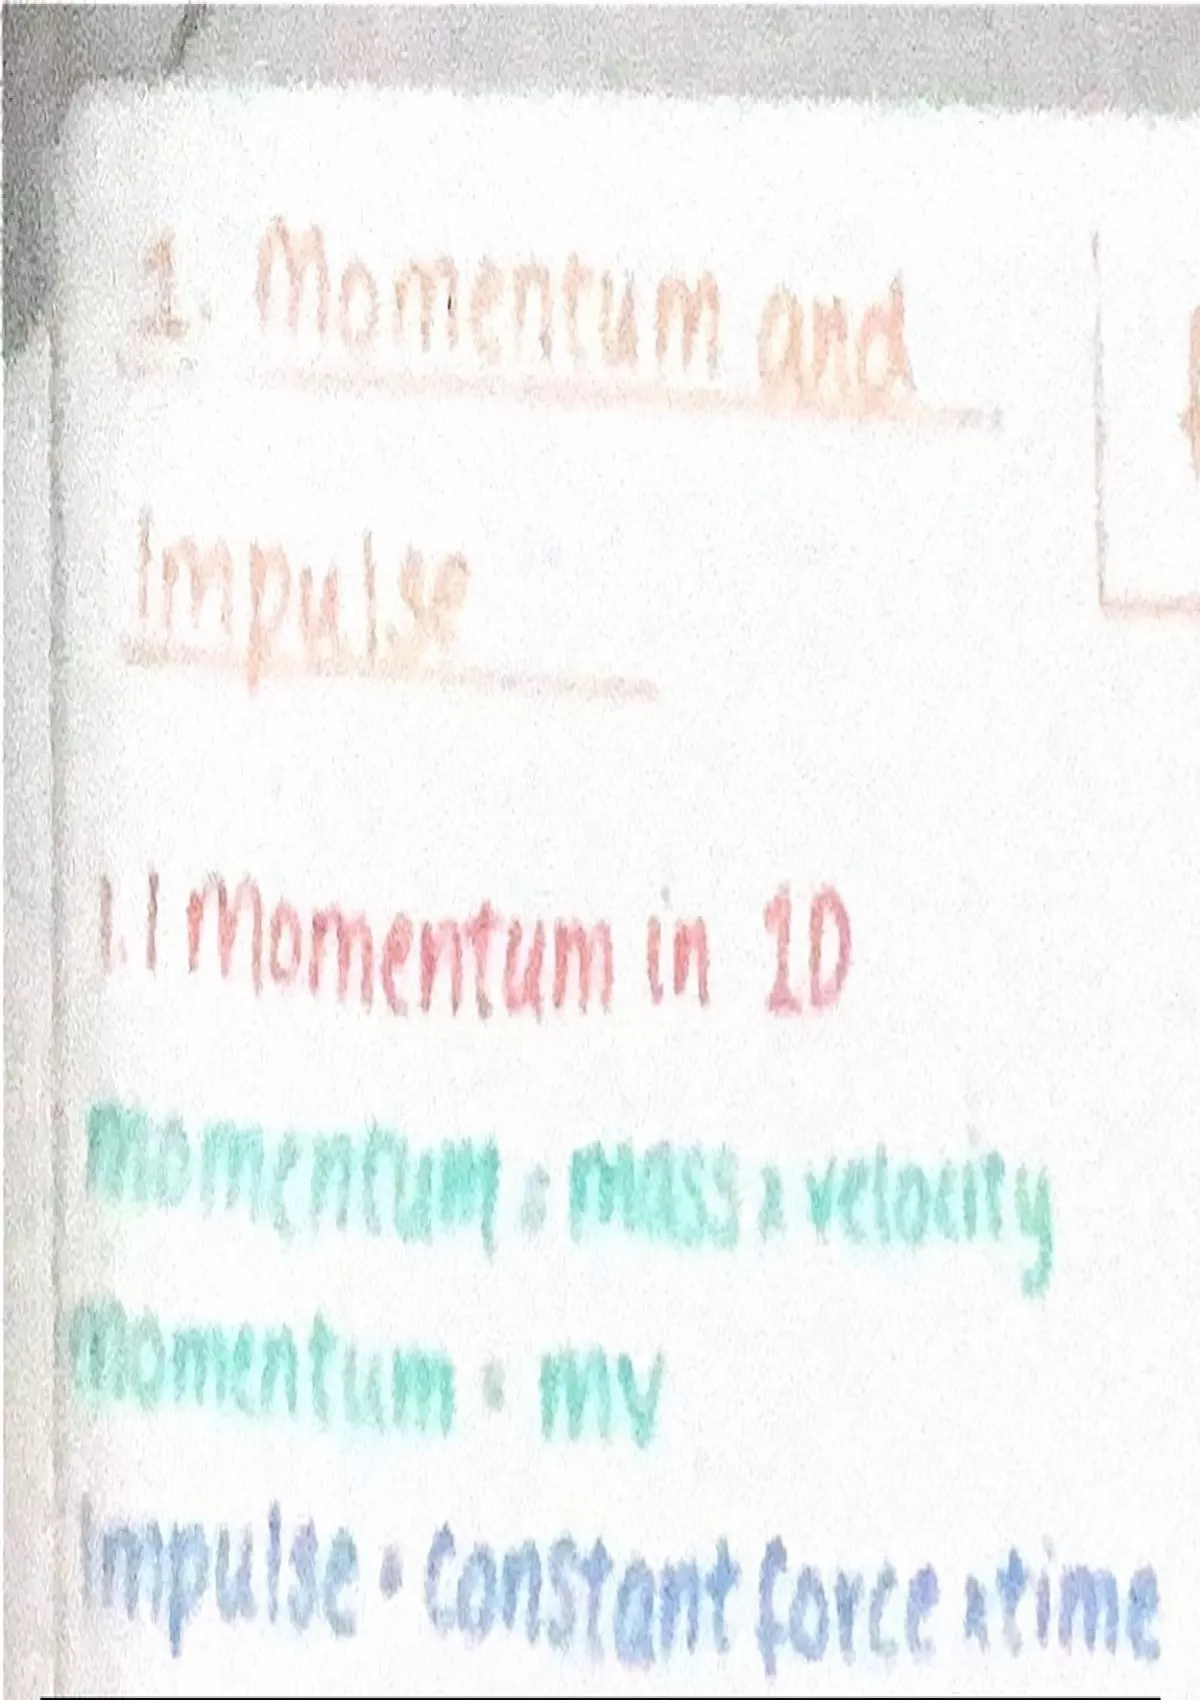 1. Momentum and
Impulse
1.1 Momentum in 1D
Momentum = mass x velocity
Momentum = mv
Impulse = constant force x time